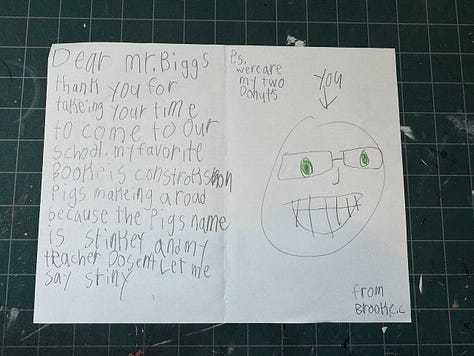 Dear mr. Biggs
thank you for
takeing your time
to come to our
school. my favorite
Booke is constrokshon
Pigs makeing a road
because the Pigs name
is stinkey and my
teacher Dosent Let me
say stiny
P.s.
wercare
my two
Donuts
you
from
Brooke.c